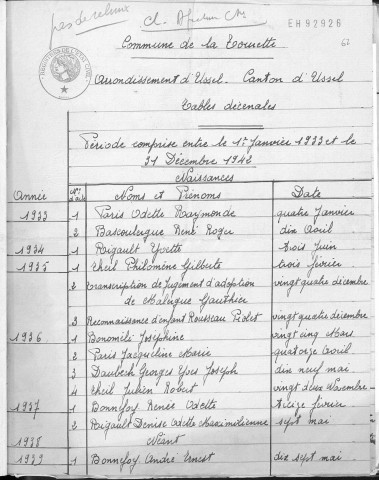 pas de relevé
EH 92926
62
Commune de la Tourette
Arrondissement d'Ussel. Canton d'Ussel
Tables décenales
Période comprise entre le 1er Janvier 1933 et le
31 Décembre 1942
Naissances
Année Nos d'acte Noms et Prénoms Date
1933 1 Paris Odette Raymonde quatre Janvier
2 Bascoulergue René Roger dix Avril
1934 1 Rigault Yvette trois Juin
1935 1 Theil Philomène Gilberte trois février
2 Transcription de Jugement d'adoption vingt quatre décembre
de Malergue Gauthier
3 Reconnaissance d'enfant Rousseau Piolet vingt quatre décembre
1936 1 Bonomeli Joséphine vingt cinq Mars
2 Paris Jacqueline Marie quatorze Avril
3 Daubech Georges Yves Joseph dix neuf mai
4 Theil Julien Robert vingt deux Novembre
1937 1 Bonnefoy Renée Odette treize février
2 Rigault Denise Odette Maximilienne sept mai
1938 Néant
1939 1 Bonnefoy André Ernest dix sept mai